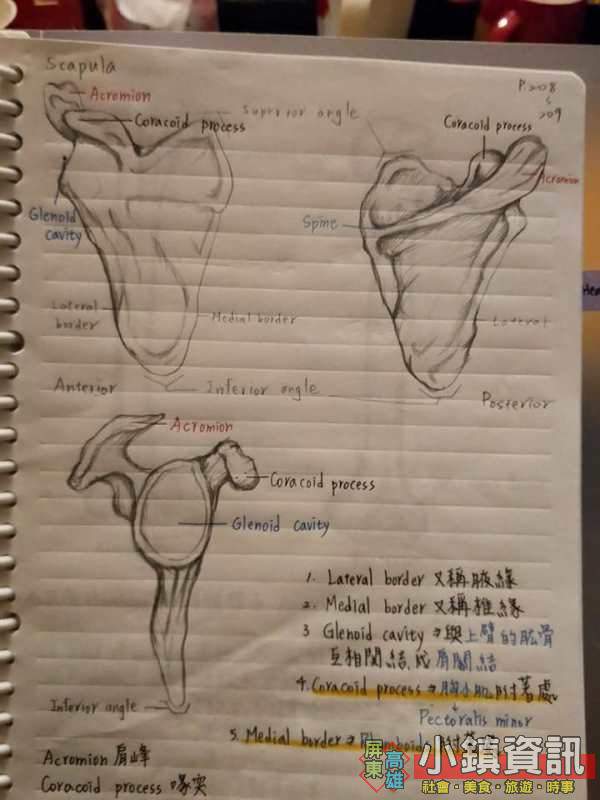 Scapula
P.208
~
209
Acromion
Coracoid process
Superior angle
Coracoid process
Acromion
Glenoid
cavity
Spine
Lateral
border
Medial border
Lateral
Anterior
Inferior angle
Posterior
Acromion
Coracoid process
Glenoid cavity
1. Lateral border 又稱腋緣
2. Medial border 又稱椎緣
3 Glenoid cavity → 與上臂的肱骨
互相関結成肩関結
4. Coracoid process → 胸小肌附著處
Pectoralis minor
Inferior angle
5. Medial border →
Acromion 肩峰
Coracoid process 喙突
屏東
高雄
小鎮資訊
社會·美食·旅遊·時事